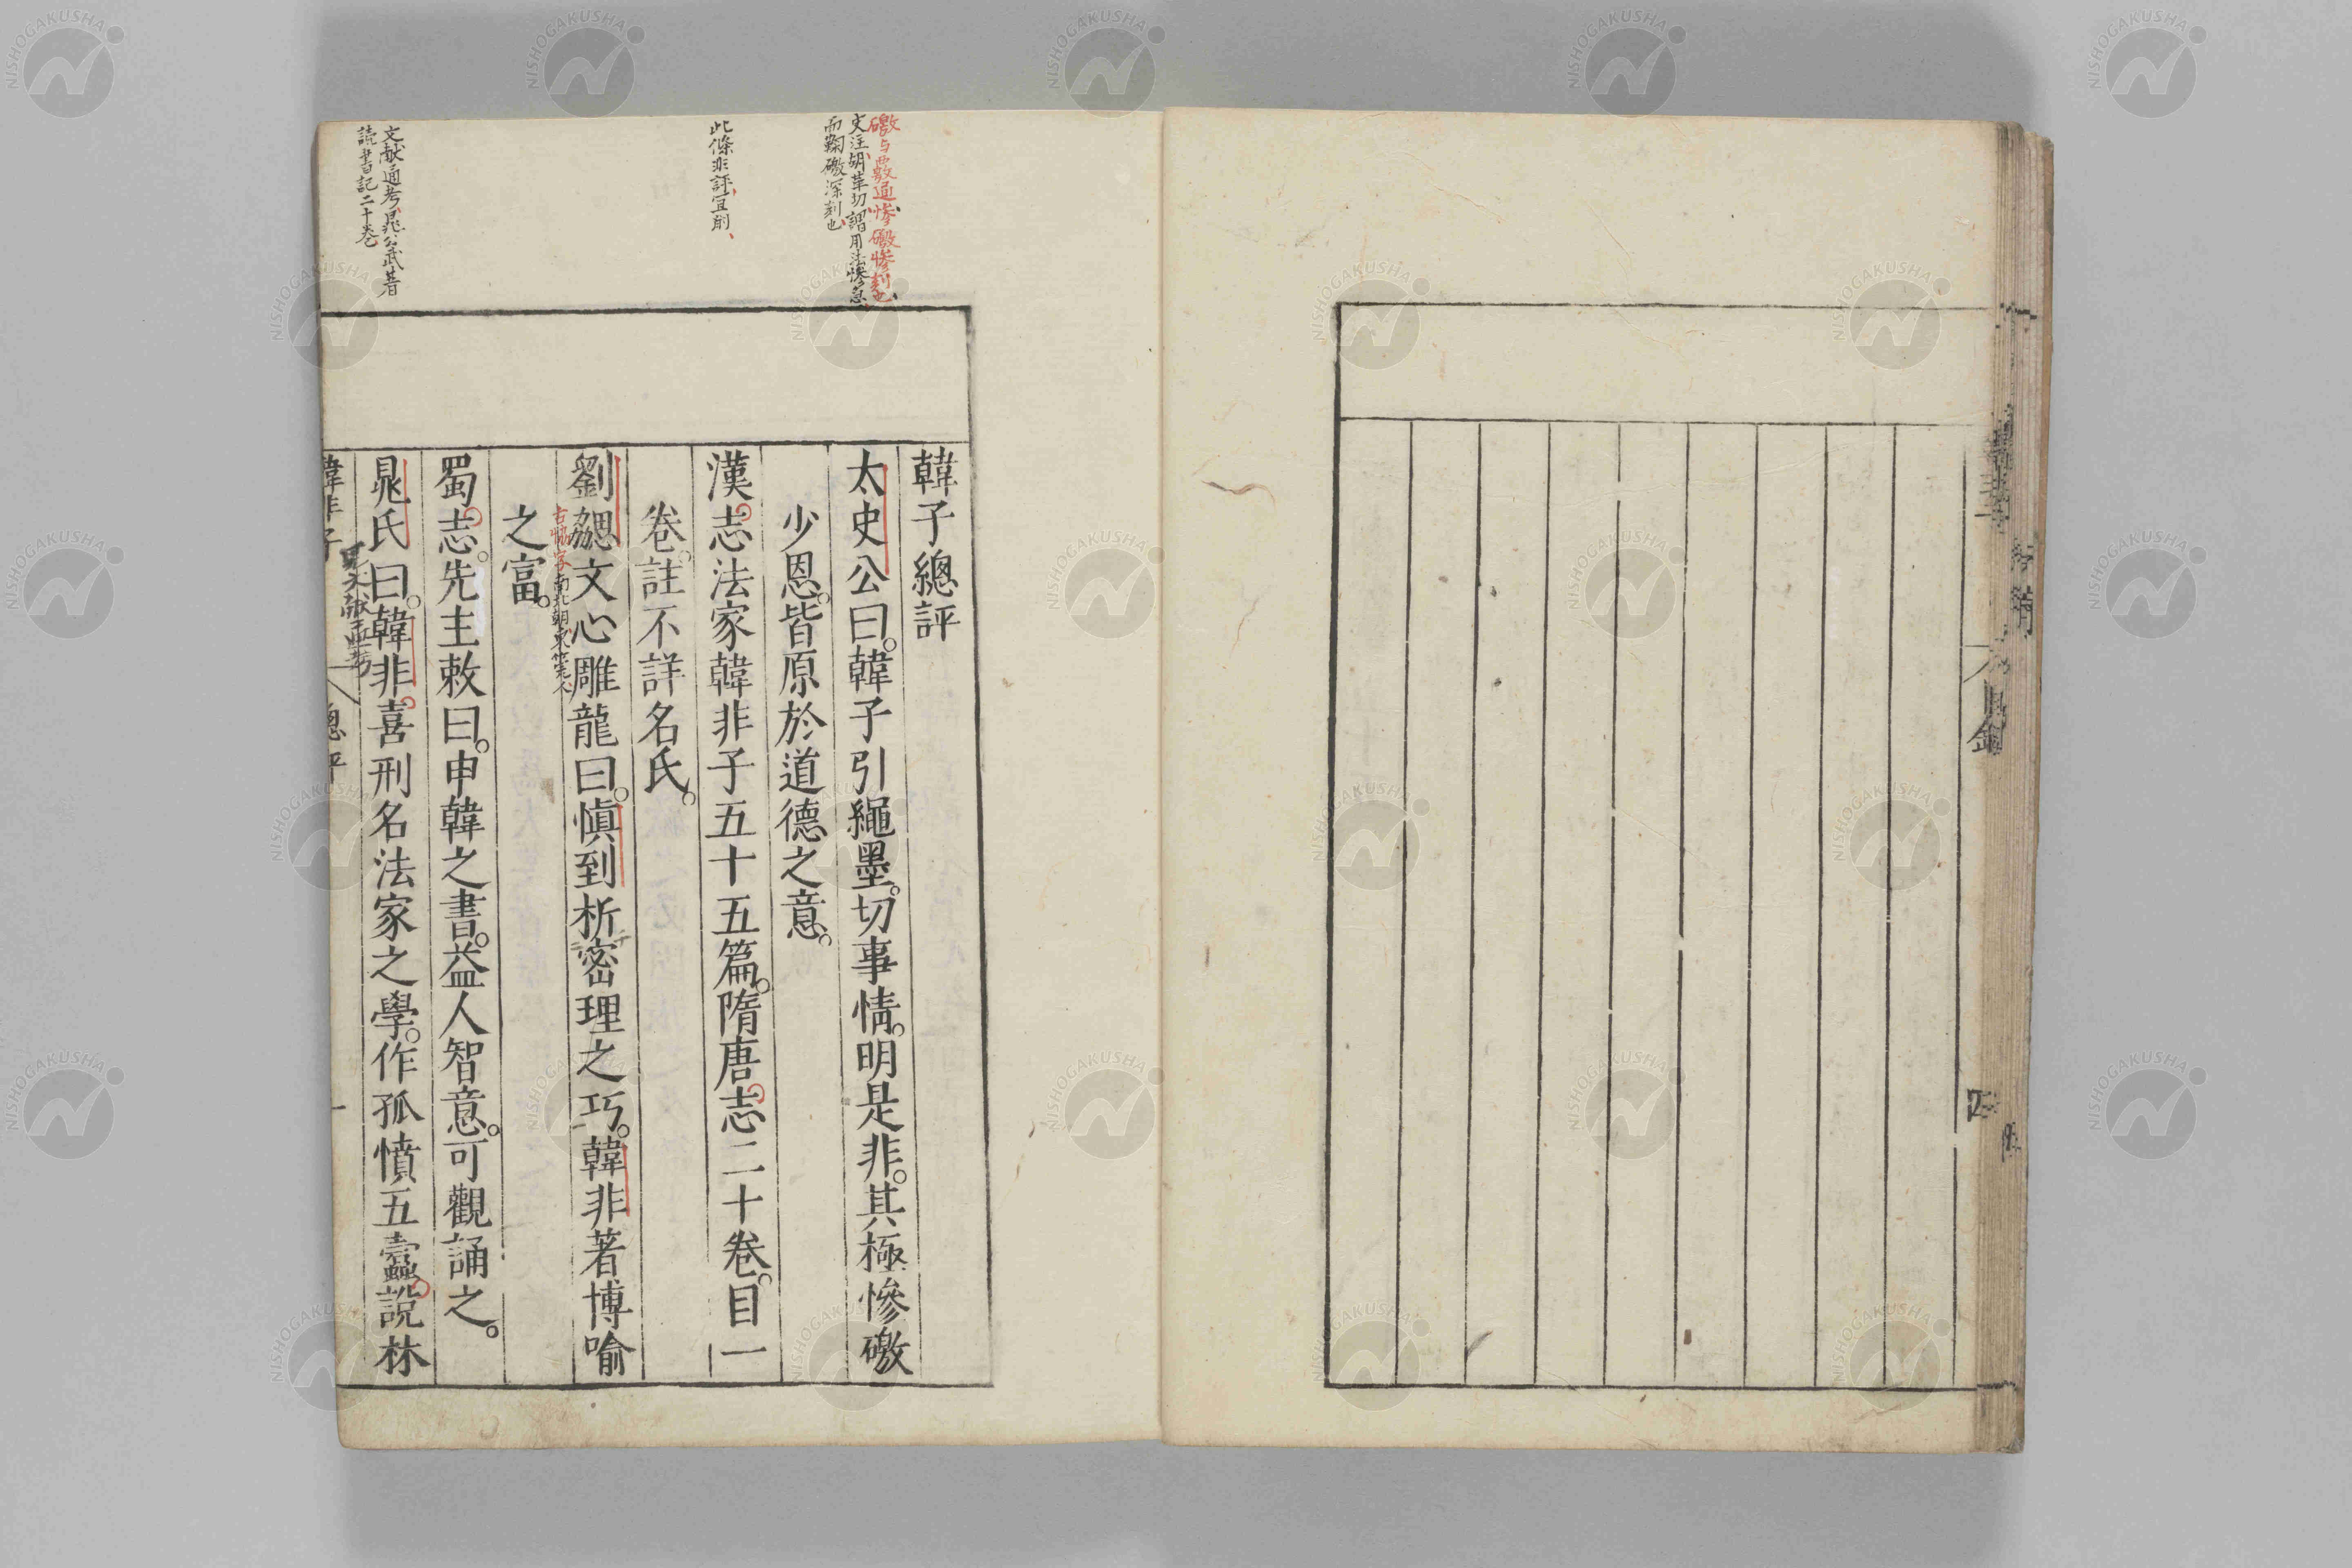 礉与覈通惨礉惨刻也
史注胡革切謂用法惨急
而鞠礉深刻也
此條非評宜削
文献通考晁公武著
読書記二十巻
韓子總評
太史公曰。韓子引繩墨。切事情。明是非。其極慘礉
少恩。皆原於道德之意。
漢志法家韓非子五十五篇。隋唐志二十卷。目一
卷。註不詳名氏。
劉勰文心雕龍曰。愼到析密理之巧。韓非著博喻
古協字南北朝
之富。
蜀志。先主敕曰。申韓之書。益人智意。可觀誦之。
晁氏曰。韓非。喜刑名法家之學。作孤憤五蠹說林
韓非子
總評
一
目錄
四